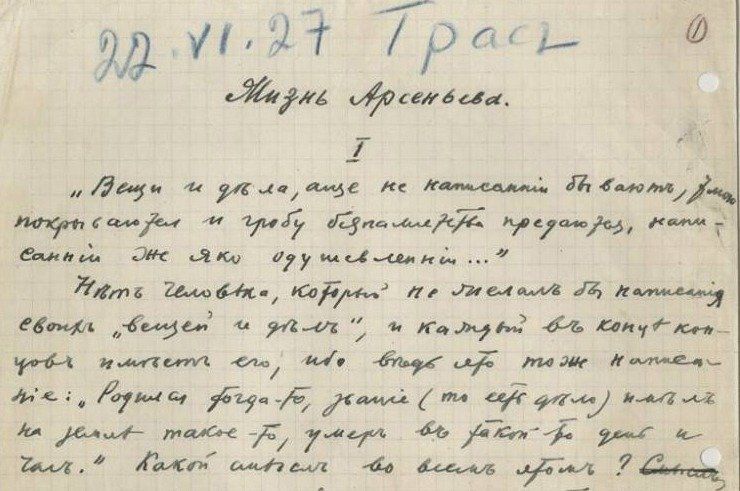 22.VI.27 Грасъ
1
Жизнь Арсеньева.
I
„Вещи и дѣла, аще не написаннiи бываютъ, тмою
покрываются и гробу безпамятства предаются, напи-
саннiи же яко одушевленнiи..."
Нѣтъ человѣка, который не желалъ бы написанія
своихъ „вещей и дѣлъ", и каждый въ концѣ кон-
цовъ имѣетъ его, ибо вѣдь это тоже написа-
ніе: „Родился тогда-то, званіе (то есть дѣло) имѣлъ
на землѣ такое-то, умеръ въ такой-то день и
часъ." Какой смыслъ во всемъ этомъ?